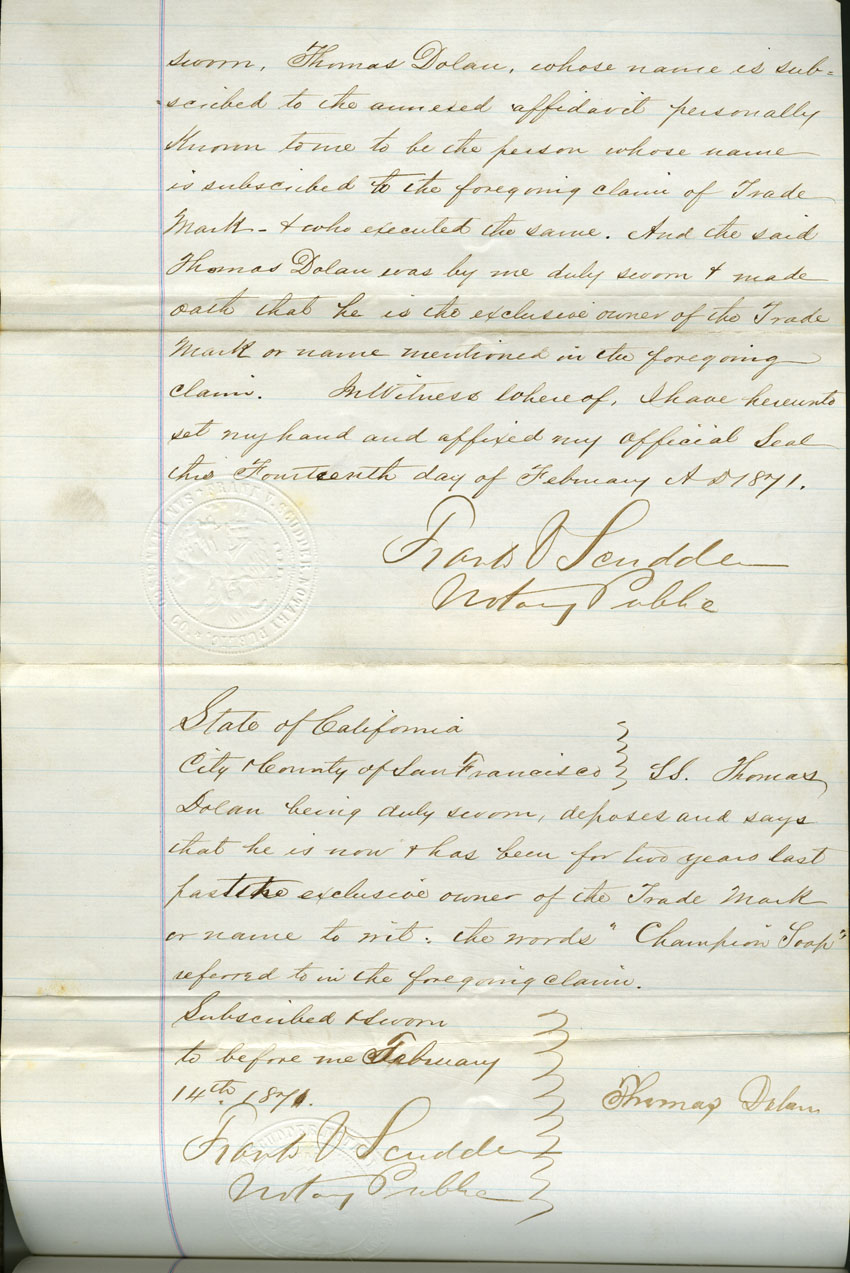 sworn, Thomas Dolan, whose name is sub=
scribed to the annexed affidavit personally
Known to me to be the person whose name
is subscribed to the foregoing claim of Trade
Mark - & who executed the same. And the said
Thomas Dolan was by me duly sworn & made
oath that he is the exclusive owner of the Trade
Mark or name mentioned in the foregoing
claim. In Witness Whereof, I have hereunto
set my hand and affixed my official Seal
this Fourteenth day of February A D 1871.
Frank V Scudder
Notary Public
State of California
City & County of San Francisco } SS. Thomas
Dolan being duly sworn, deposes and says
that he is now & has been for two years last
past the exclusive owner of the Trade Mark
or name to wit: the words "Champion Soap"
referred to in the foregoing claim.
Subscribed & sworn
to before me February
14th 1871.
Thomas Dolan
Frank V Scudder
Notary Public